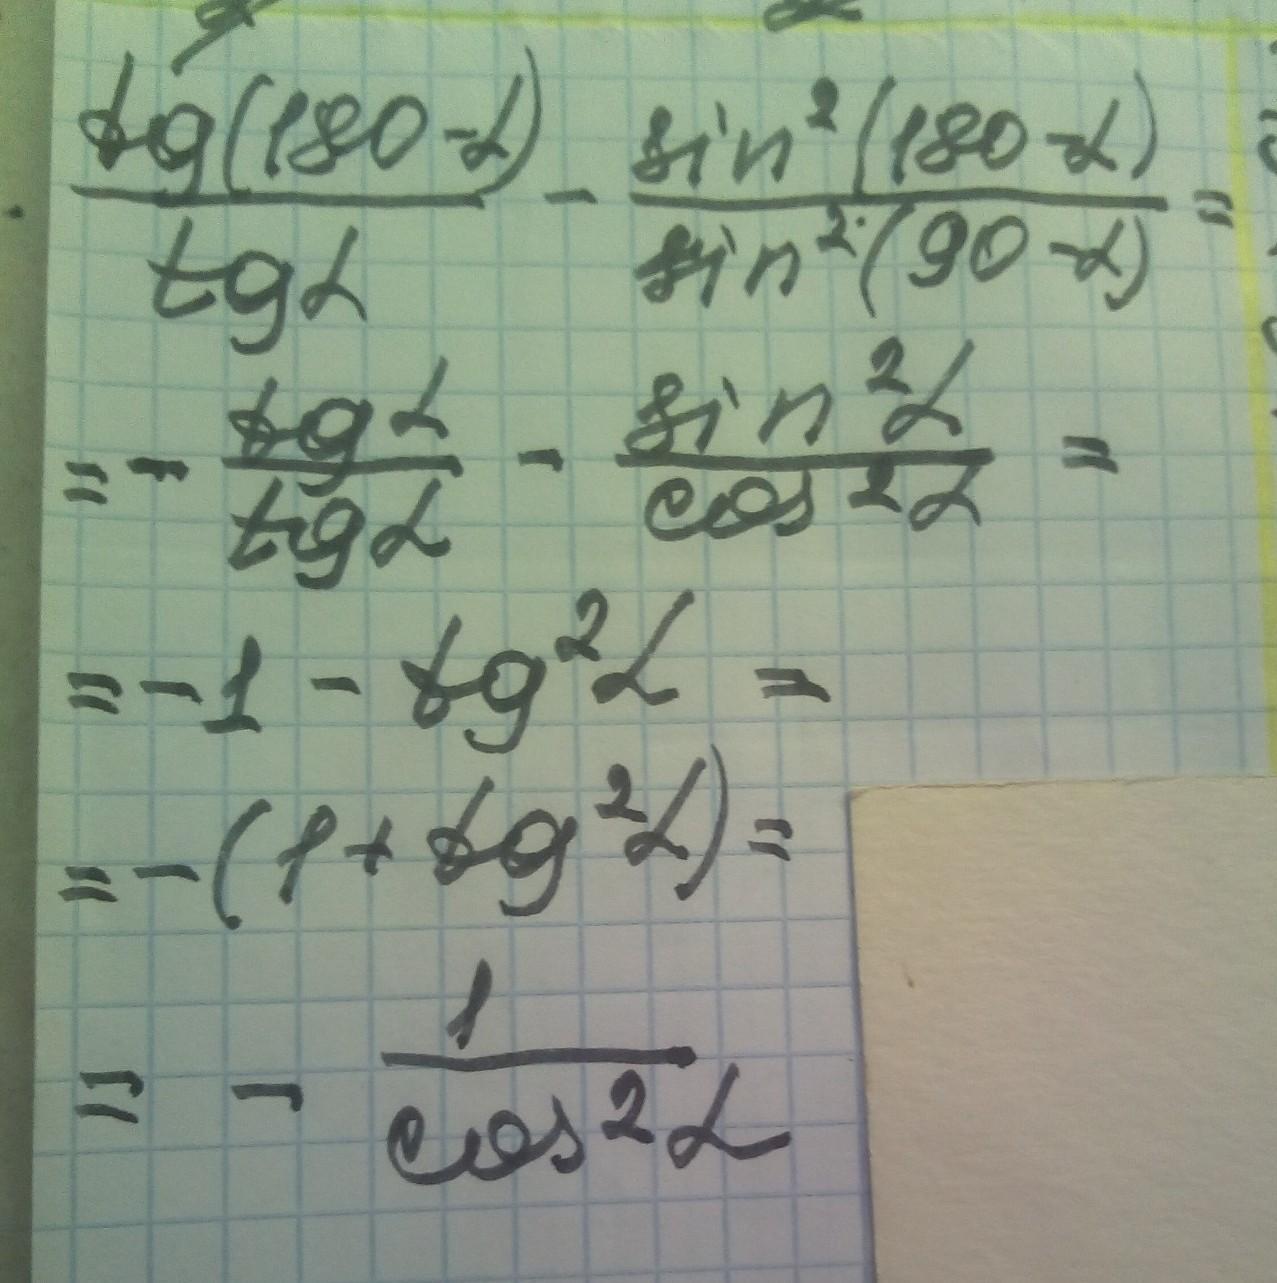 tg(180-α)/tgα - sin²(180-α)/sin²(90-α) =
= - tgα/tgα - sin²α/cos²α =
= -1 - tg²α =
= -(1 + tg²α) =
= - 1/cos²α